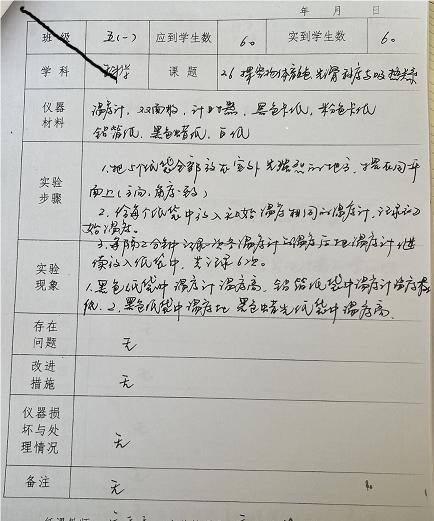 年 月 日
班级 五(一) 应到学生数 60 实到学生数 60
学科 科学 课题 26 探究物体颜色、光滑程度与吸热关系
仪器材料 温度计、双面胶、计时器、黑色卡纸、粉色卡纸
铝箔纸、黑色蜡光纸、白纸
实验步骤 1.把5个纸袋全部放在室外光照强的地方,摆在同一平
面上(方向、角度一致)
2.给每个纸袋中放入起始温度相同的温度计,记录初
始温度。
3.每隔2分钟记录一次各温度计的温度后把温度计继
续放入纸袋中,共记录6次。
实验现象 1.黑色纸袋中温度计温度高,铝箔纸袋中温度计温度最
低。2.黑色纸袋中温度比黑色蜡光纸袋中温度高
存在问题 无
改进措施 无
仪器损坏与处理情况 无
备注 无